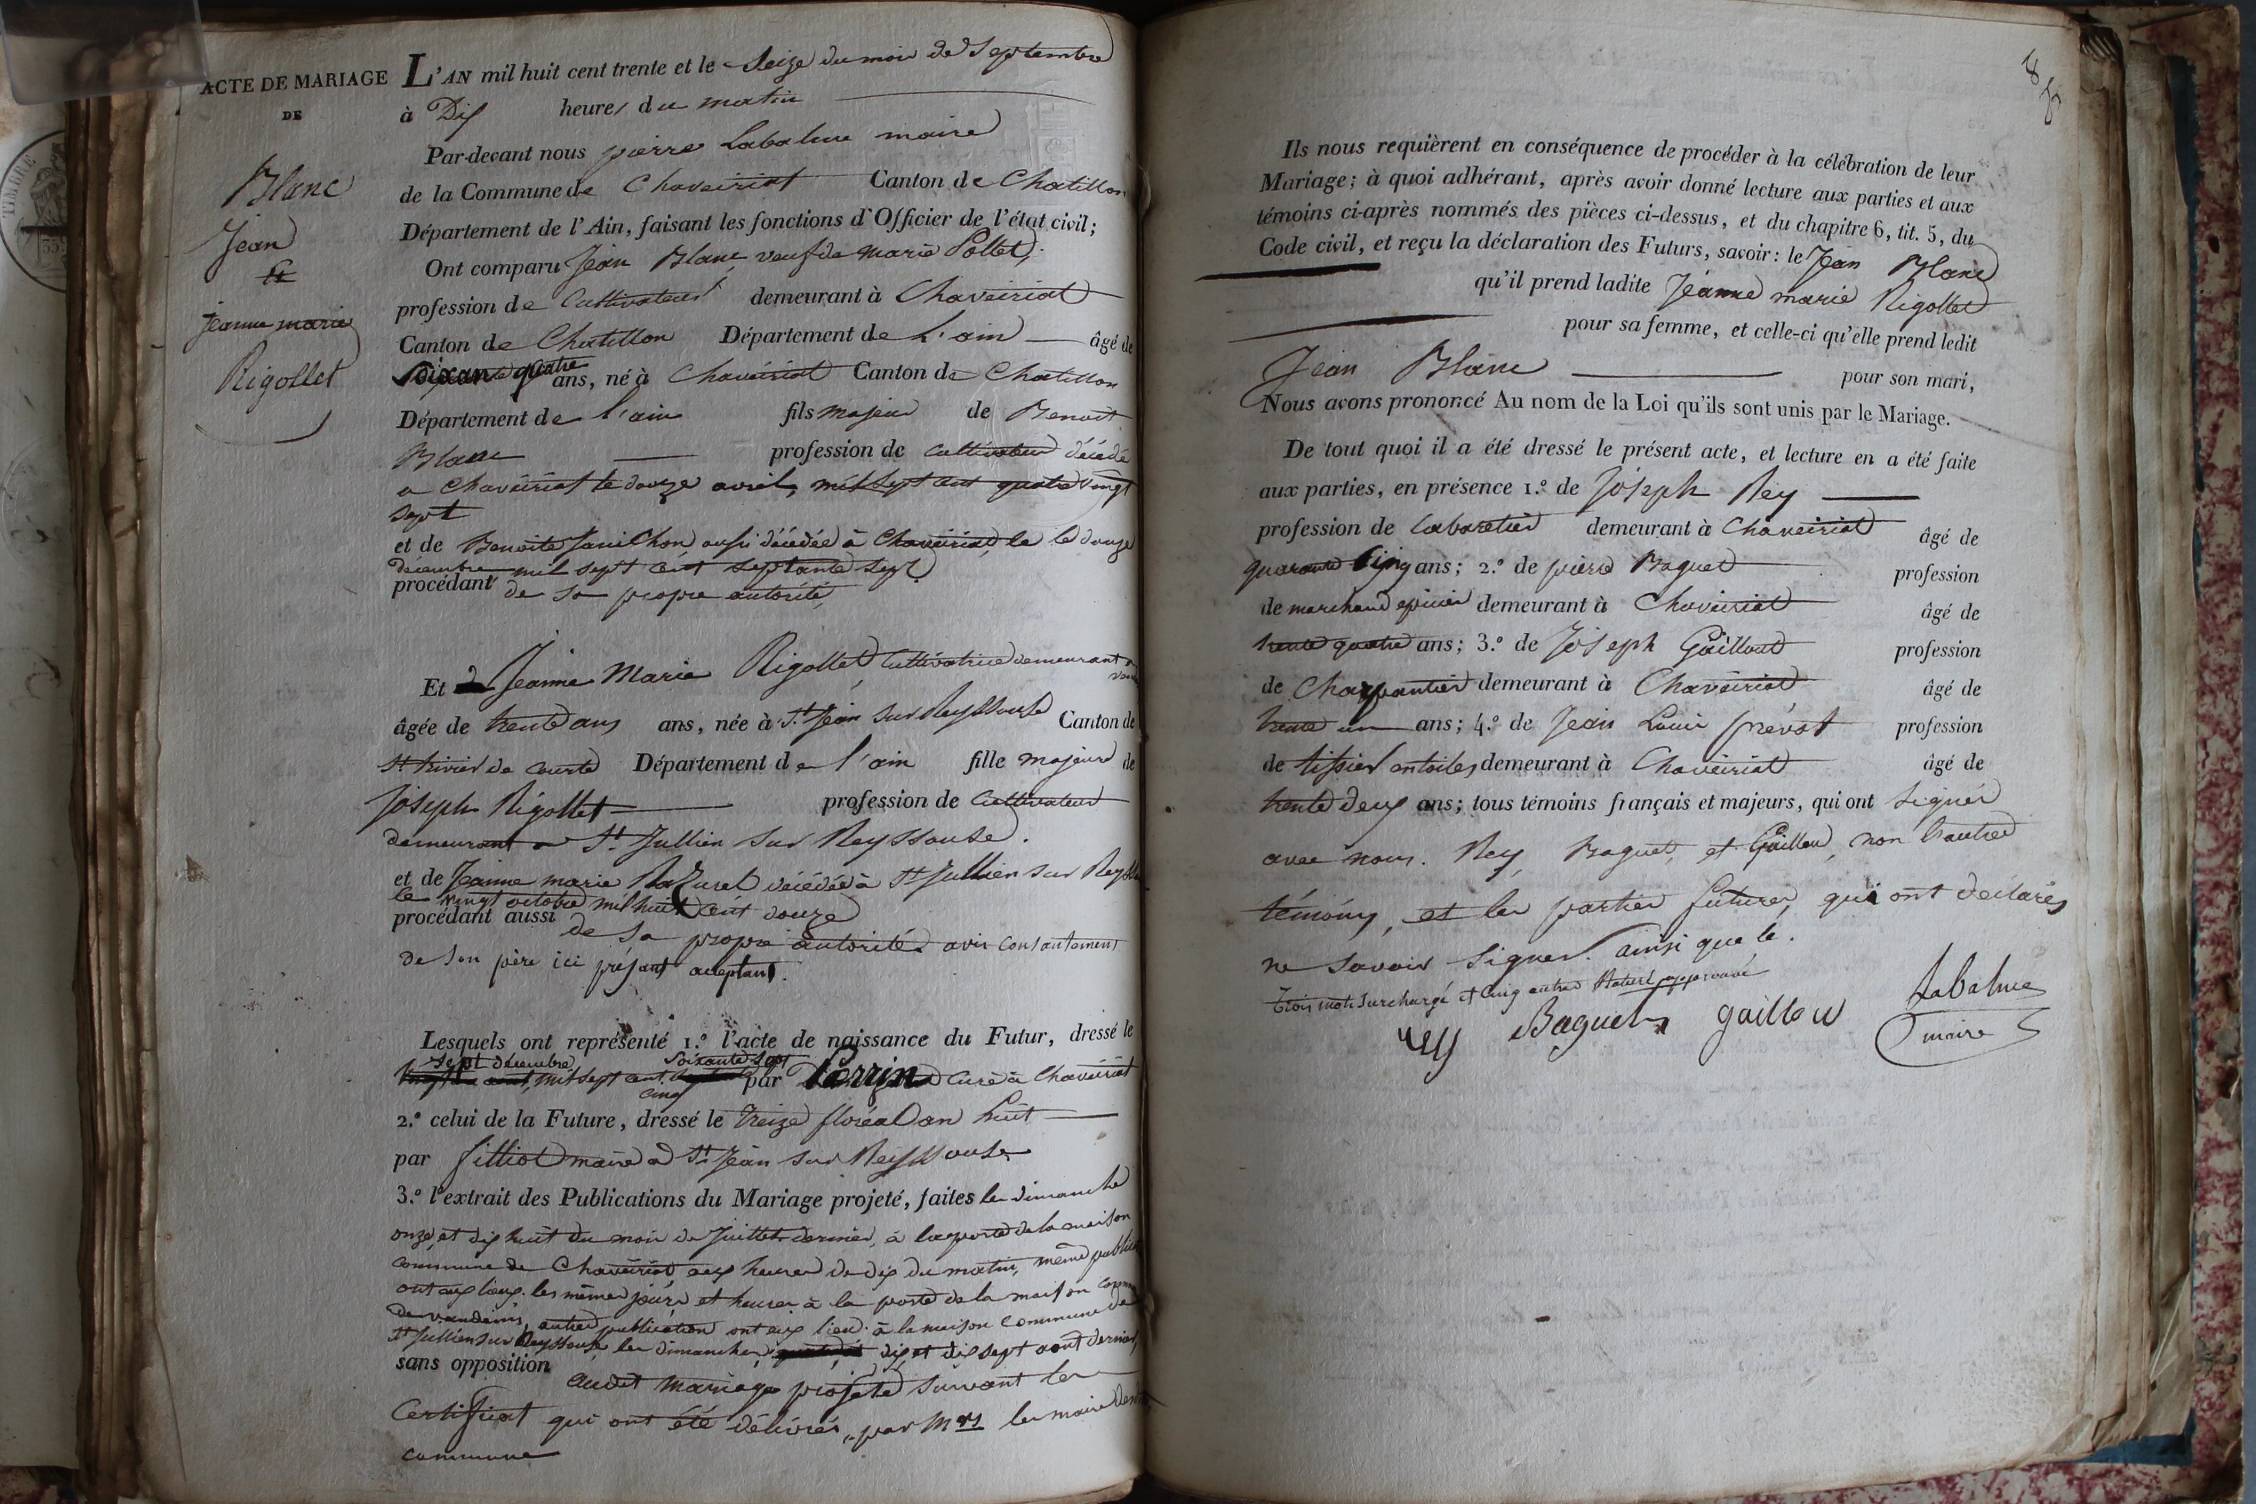 ACTE DE MARIAGE
DE
Blanc
Jean
et
jeanne marie
Rigollet
L'AN mil huit cent trente et le Seize du mois de Septembre
à Dix heures du matin
Par-devant nous pierre Labalme maire
de la Commune de Chaveiriat Canton de Chatillon
Département de l'Ain, faisant les fonctions d'Officier de l'état civil;
Ont comparu Jean Blanc, veuf de marie Pollet,
profession de Cultivateur demeurant à Chaveiriat
Canton de Chatillon Département de L'ain âgé de
Soixante quatre ans, né à Chaveiriat Canton de Chatillon
Département de l'ain fils majeur de Benoit
Blanc profession de cultivateur décédé
a Chaveiriat le douze avril, mil sept cent quatre vingt
sept
et de Benoite Janichon aussi décédée à Chaveiriat, le le douze
decembre mil sept cent septante sept
procédant de sa propre autorité,
Et Jeanne Marie Rigollet Cultivatrice demeurant a
âgée de trente ans ans, née à St. Jean sur Reyssouse Canton de
St trivier de courte Département de l'ain fille majeur de
joseph Rigollet profession de Cultivateur
demeurant a St Jullien sur Reyssouse.
et de Jeanne marie décédée à St Jullien sur
le vingt octobre mil huit cent douze
procédant aussi de sa propre autorité avis consantement
de son père ici présant acceptant.
Lesquels ont représenté 1.º l'acte de naissance du Futur, dressé le
Sept décembre soixante sept
mil sept cent par Perrin Curé à Chaveiriat
cinq
2.º celui de la Future, dressé le treize floréal an huit
par filliod maire a St. Jean sur Reyssouse
3.º l'extrait des Publications du Mariage projeté, faites les dimanche
onze, et dix huit du mois de Juillet dernier, à la porte de la maison
commune de Chaveiriat aux heures de dix du matin, même
ont aux lieux les mêmes jours et heures à la porte de la maison
de vandeins, autres publication ont aux lieu à la maison commune de
St Jullien sur Reyssouse, les dimanches, dix et dix sept août dernier,
sans opposition audit mariage projeté suivant les
Certificat qui ont été délivrés, par Mrs les maire
commune
Ils nous requièrent en conséquence de procéder à la célébration de leur
Mariage; à quoi adhérant, après avoir donné lecture aux parties et aux
témoins ci-après nommés des pièces ci-dessus, et du chapitre 6, tit. 5, du
Code civil, et reçu la déclaration des Futurs, savoir: le Jean Blanc
qu'il prend ladite Jeanne marie Rigollet
pour sa femme, et celle-ci qu'elle prend ledit
Jean Blanc pour son mari,
Nous avons prononcé Au nom de la Loi qu'ils sont unis par le Mariage.
De tout quoi il a été dressé le présent acte, et lecture en a été faite
aux parties, en présence 1.º de Joseph Rey
profession de Cabaretier demeurant à Chaveiriat âgé de
quarante Cinq ans; 2.º de pierre Baguet profession
de marchand epicier demeurant à Chaveiriat âgé de
trente quatre ans; 3.º de Joseph Gaillout profession
de Charpantier demeurant à Chaveiriat âgé de
trente un ans; 4.º de Jean Louis prévot profession
de tissier entoiles demeurant à Chaveiriat âgé de
trente deux ans; tous témoins français et majeurs, qui ont signés
avec nous. Rey, Baguet, et Gaillou, non L'autre
témoins, et les parties futures, qui ont declarés
ne savoir signer. ainsi que le.
Trois mots surchargé et cinq autres approuvé
rey Baguet gaillou Labalme
maire